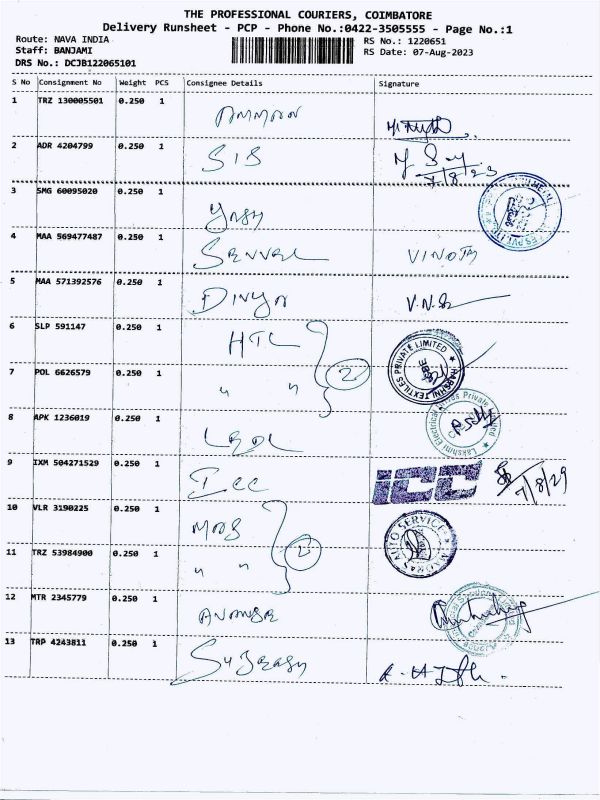 THE PROFESSIONAL COURIERS, COIMBATORE
Delivery Runsheet - PCP - Phone No.:0422-3505555 - Page No.:1
Route: NAVA INDIA RS No.: 1220651
Staff: BANJAMI RS Date: 07-Aug-2023
DRS No.: DCJB122065101
S No Consignment No Weight PCS Consignee Details Signature
1 TRZ 130005501 0.250 1 AMMAN
2 ADR 4204799 0.250 1 SIS
7/8/23
3 SMG 60095020 0.250 1 Yash
4 MAA 569477487 0.250 1 VINOTH
5 MAA 571392576 0.250 1 Divya
6 SLP 591147 0.250 1 HTL
PRIVATE LIMITED
7 POL 6626579 0.250 1 " " 2
HARSHNI TEXTILES
8 APK 1236019 0.250 1
Lakshmi Electrical Private Limited
9 IXM 504271529 0.250 1 ICC ICC 7/8/29
10 VLR 3190225 0.250 1 MAS
MADRAS AUTO SERVICE
11 TRZ 53984900 0.250 1 " " 2
12 MTR 2345779 0.250 1
13 TRP 4243811 0.250 1